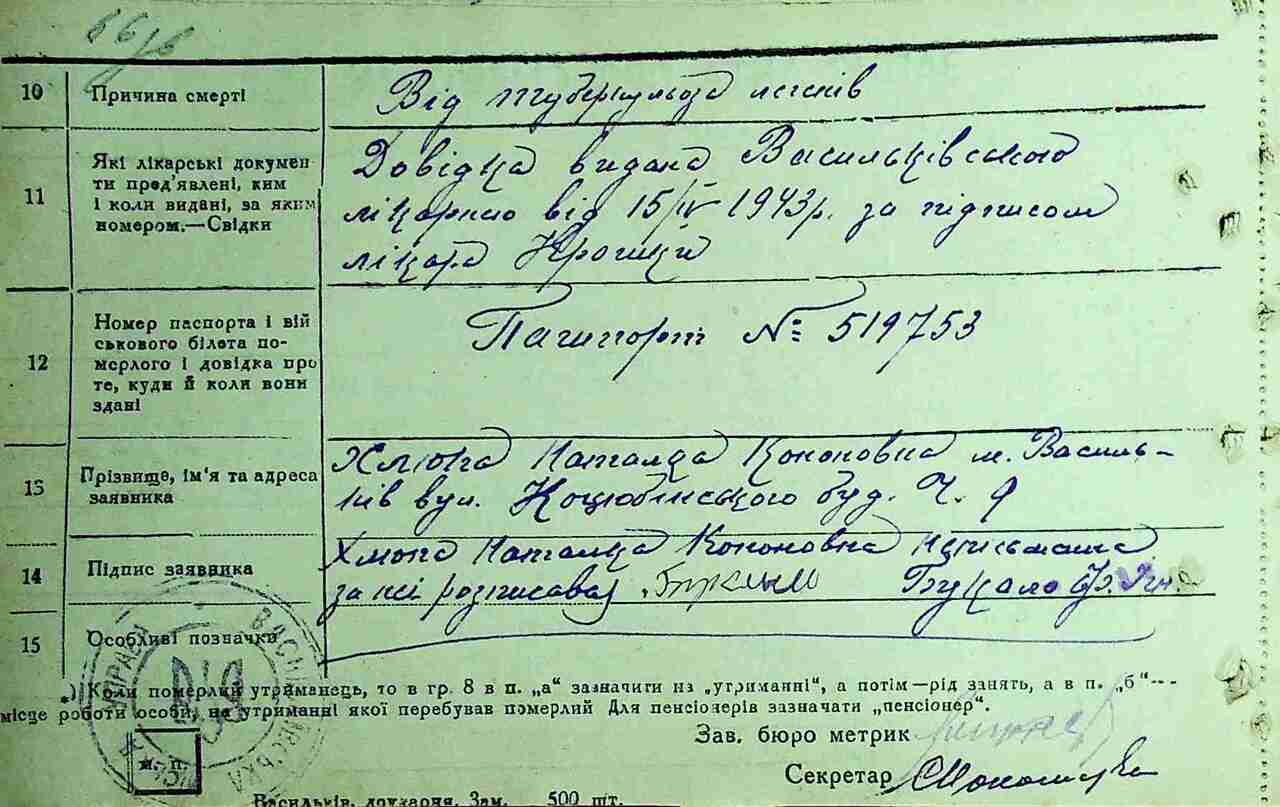 66/6
10 Причина смерті Від туберкульоза легенів
11 Які лікарські докумен
ти пред'явлені, ким
і коли видані, за яким
номером.—Свідки
Довідка видана Васильківською
лікарнею від 15/IV 1943р. за підписом
лікаря
12 Номер паспорта і вій
ськового білета по-
мерлого і довідка про
те, куди й коли вони
здані
Пашпорт № 519753
13 Прізвище, ім'я та адреса
заявника
Наталка Кононовна м. Василь-
ків вул. Коцюбінського буд. Ч. 9
14 Підпис заявника
Наталка Кононовна неписьменна
за неї розписавсь Букало
15 Особливі позначки
.) Коли померлий утриманець, то в гр. 8 в п. „а" зазначити на „утриманні", а потім—рід занять, а в п. „б"---
місце роботи особи, на утриманні якої перебував померлий Для пенсіонерів зазначати „пенсіонер".
Зав. бюро метрик
Секретар
м. п.
Васильків, друкарня, Зам. 500 шт.